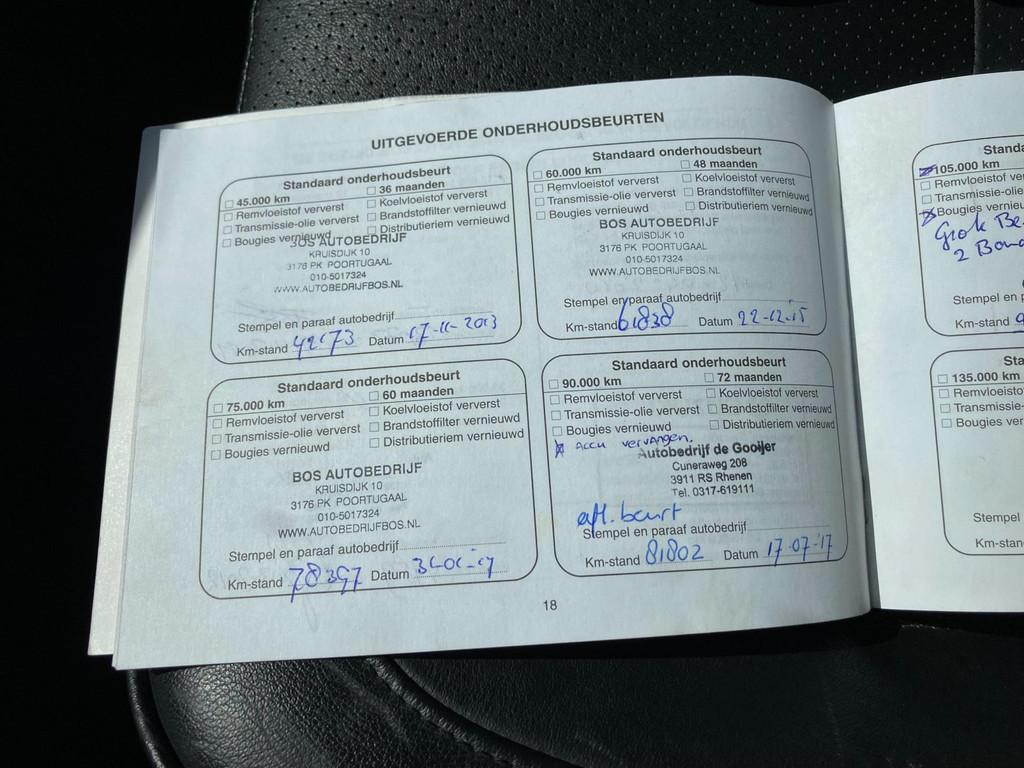 UITGEVOERDE ONDERHOUDSBEURTEN
Standaard onderhoudsbeurt
45.000 km 36 maanden
Remvloeistof ververst Koelvloeistof ververst
Transmissie-olie ververst Brandstoffilter vernieuwd
Bougies vernieuwd Distributieriem vernieuwd
BOS AUTOBEDRIJF
KRUISDIJK 10
3176 PK POORTUGAAL
010-5017324
WWW.AUTOBEDRIJFBOS.NL
Stempel en paraaf autobedrijf
Km-stand 42173 Datum 17-11-2013
Standaard onderhoudsbeurt
60.000 km 48 maanden
Remvloeistof ververst Koelvloeistof ververst
Transmissie-olie ververst Brandstoffilter vernieuwd
Bougies vernieuwd Distributieriem vernieuwd
BOS AUTOBEDRIJF
KRUISDIJK 10
3176 PK POORTUGAAL
010-5017324
WWW.AUTOBEDRIJFBOS.NL
Stempel en paraaf autobedrijf
Km-stand 61838 Datum 22-12-15
Standaard onderhoudsbeurt
75.000 km 60 maanden
Remvloeistof ververst Koelvloeistof ververst
Transmissie-olie ververst Brandstoffilter vernieuwd
Bougies vernieuwd Distributieriem vernieuwd
BOS AUTOBEDRIJF
KRUISDIJK 10
3176 PK POORTUGAAL
010-5017324
WWW.AUTOBEDRIJFBOS.NL
Stempel en paraaf autobedrijf
Km-stand 78397 Datum
Standaard onderhoudsbeurt
90.000 km 72 maanden
Remvloeistof ververst Koelvloeistof ververst
Transmissie-olie ververst Brandstoffilter vernieuwd
Bougies vernieuwd Distributieriem vernieuwd
Accu vervangen.
Autobedrijf de Gooijer
Cuneraweg 208
3911 RS Rhenen
Tel. 0317-619111
afl. beurt
Stempel en paraaf autobedrijf
Km-stand 81802 Datum 17-07-'17
18
Standa
105.000 km
Remvloeistof ver
Transmissie-olie
Bougies vernieu
Grote Be
2 Ban
Stempel en p
Km-stand
Sta
135.000 km
Remvloeisto
Transmissie-
Bougies ver
Stempel
Km-stan